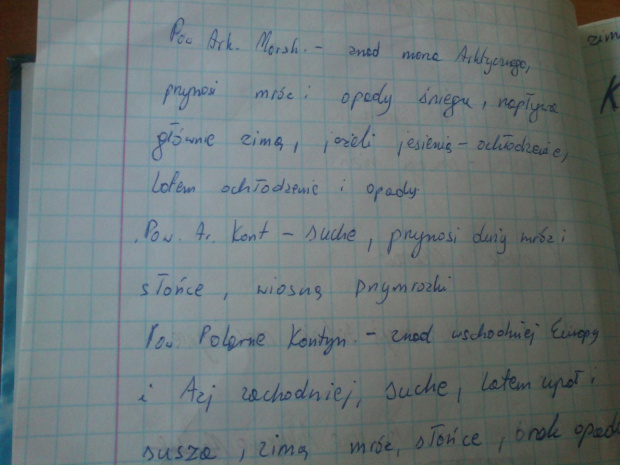 Pow Ark. Morsk. - znad morza Arktycznego,
przynosi mróz i opady śniegu, napływa
głównie zimą, jeżeli jesienią - ochłodzenie,
latem ochłodzenie i opady
Pow. Ar. Kont - suche, przynosi duży mróz i
słońce, wiosną przymrozki
Pow Polarne Kontyn. - znad wschodniej Europy
i Azj zachodniej, suche, latem upał i
susza, zimą mróz, słońce, brak opadów
zim
K